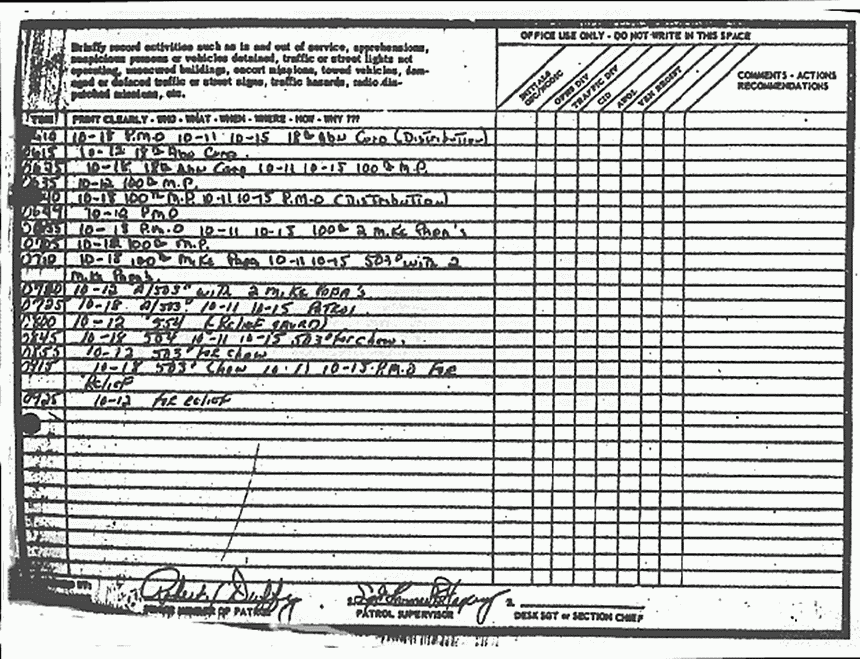 OFFICE USE ONLY - DO NOT WRITE IN THIS SPACE
Briefly record activities such as in and out of service, apprehensions,
suspicious persons or vehicles detained, traffic or street lights not
operating, unsecured buildings, escort missions, towed vehicles, dam-
aged or defaced traffic or street signs, traffic hazards, radio dis-
patched missions, etc.
INITIALS
OPNS DIV
TRAFFIC DIV
CID
AWOL
VEH REGIST
COMMENTS - ACTIONS
RECOMMENDATIONS
TIME PRINT CLEARLY - WHO - WHAT - WHEN - WHERE - HOW - WHY ???
10-18 P.M.O 10-11 10-15 18th Abn Corp (Distribution)
0615 10-12 18th Abn Corp.
0625 10-18 18th Abn Corp 10-11 10-15 100th M.P.
0635 10-12 100th M.P.
10-18 100th M.P. 10-11 10-15 P.M.O (Distribution)
0649 10-12 P.M.O
10-18 P.M.O 10-11 10-15 100th 2 Mike Papa's
0705 10-12 100th M.P.
0710 10-18 100th Mike Papa 10-11 10-15 503rd with 2
Mike Papa's.
10-12 A/503rd with 2 Mike Papa's
0725 10-18 A/503rd 10-11 10-15 Patrol
0800 10-12 554 (Relief Guard)
0845 10-18 504 10-11 10-15 503rd for chow.
0853 10-12 503rd for chow
0915 10-18 503rd Chow 10-11 10-15 P.M.O For
Relief
0925 10-12 for relief
BY:
Robert Duffy
SENIOR MEMBER OF PATROL
PATROL SUPERVISOR
DESK SGT or SECTION CHIEF